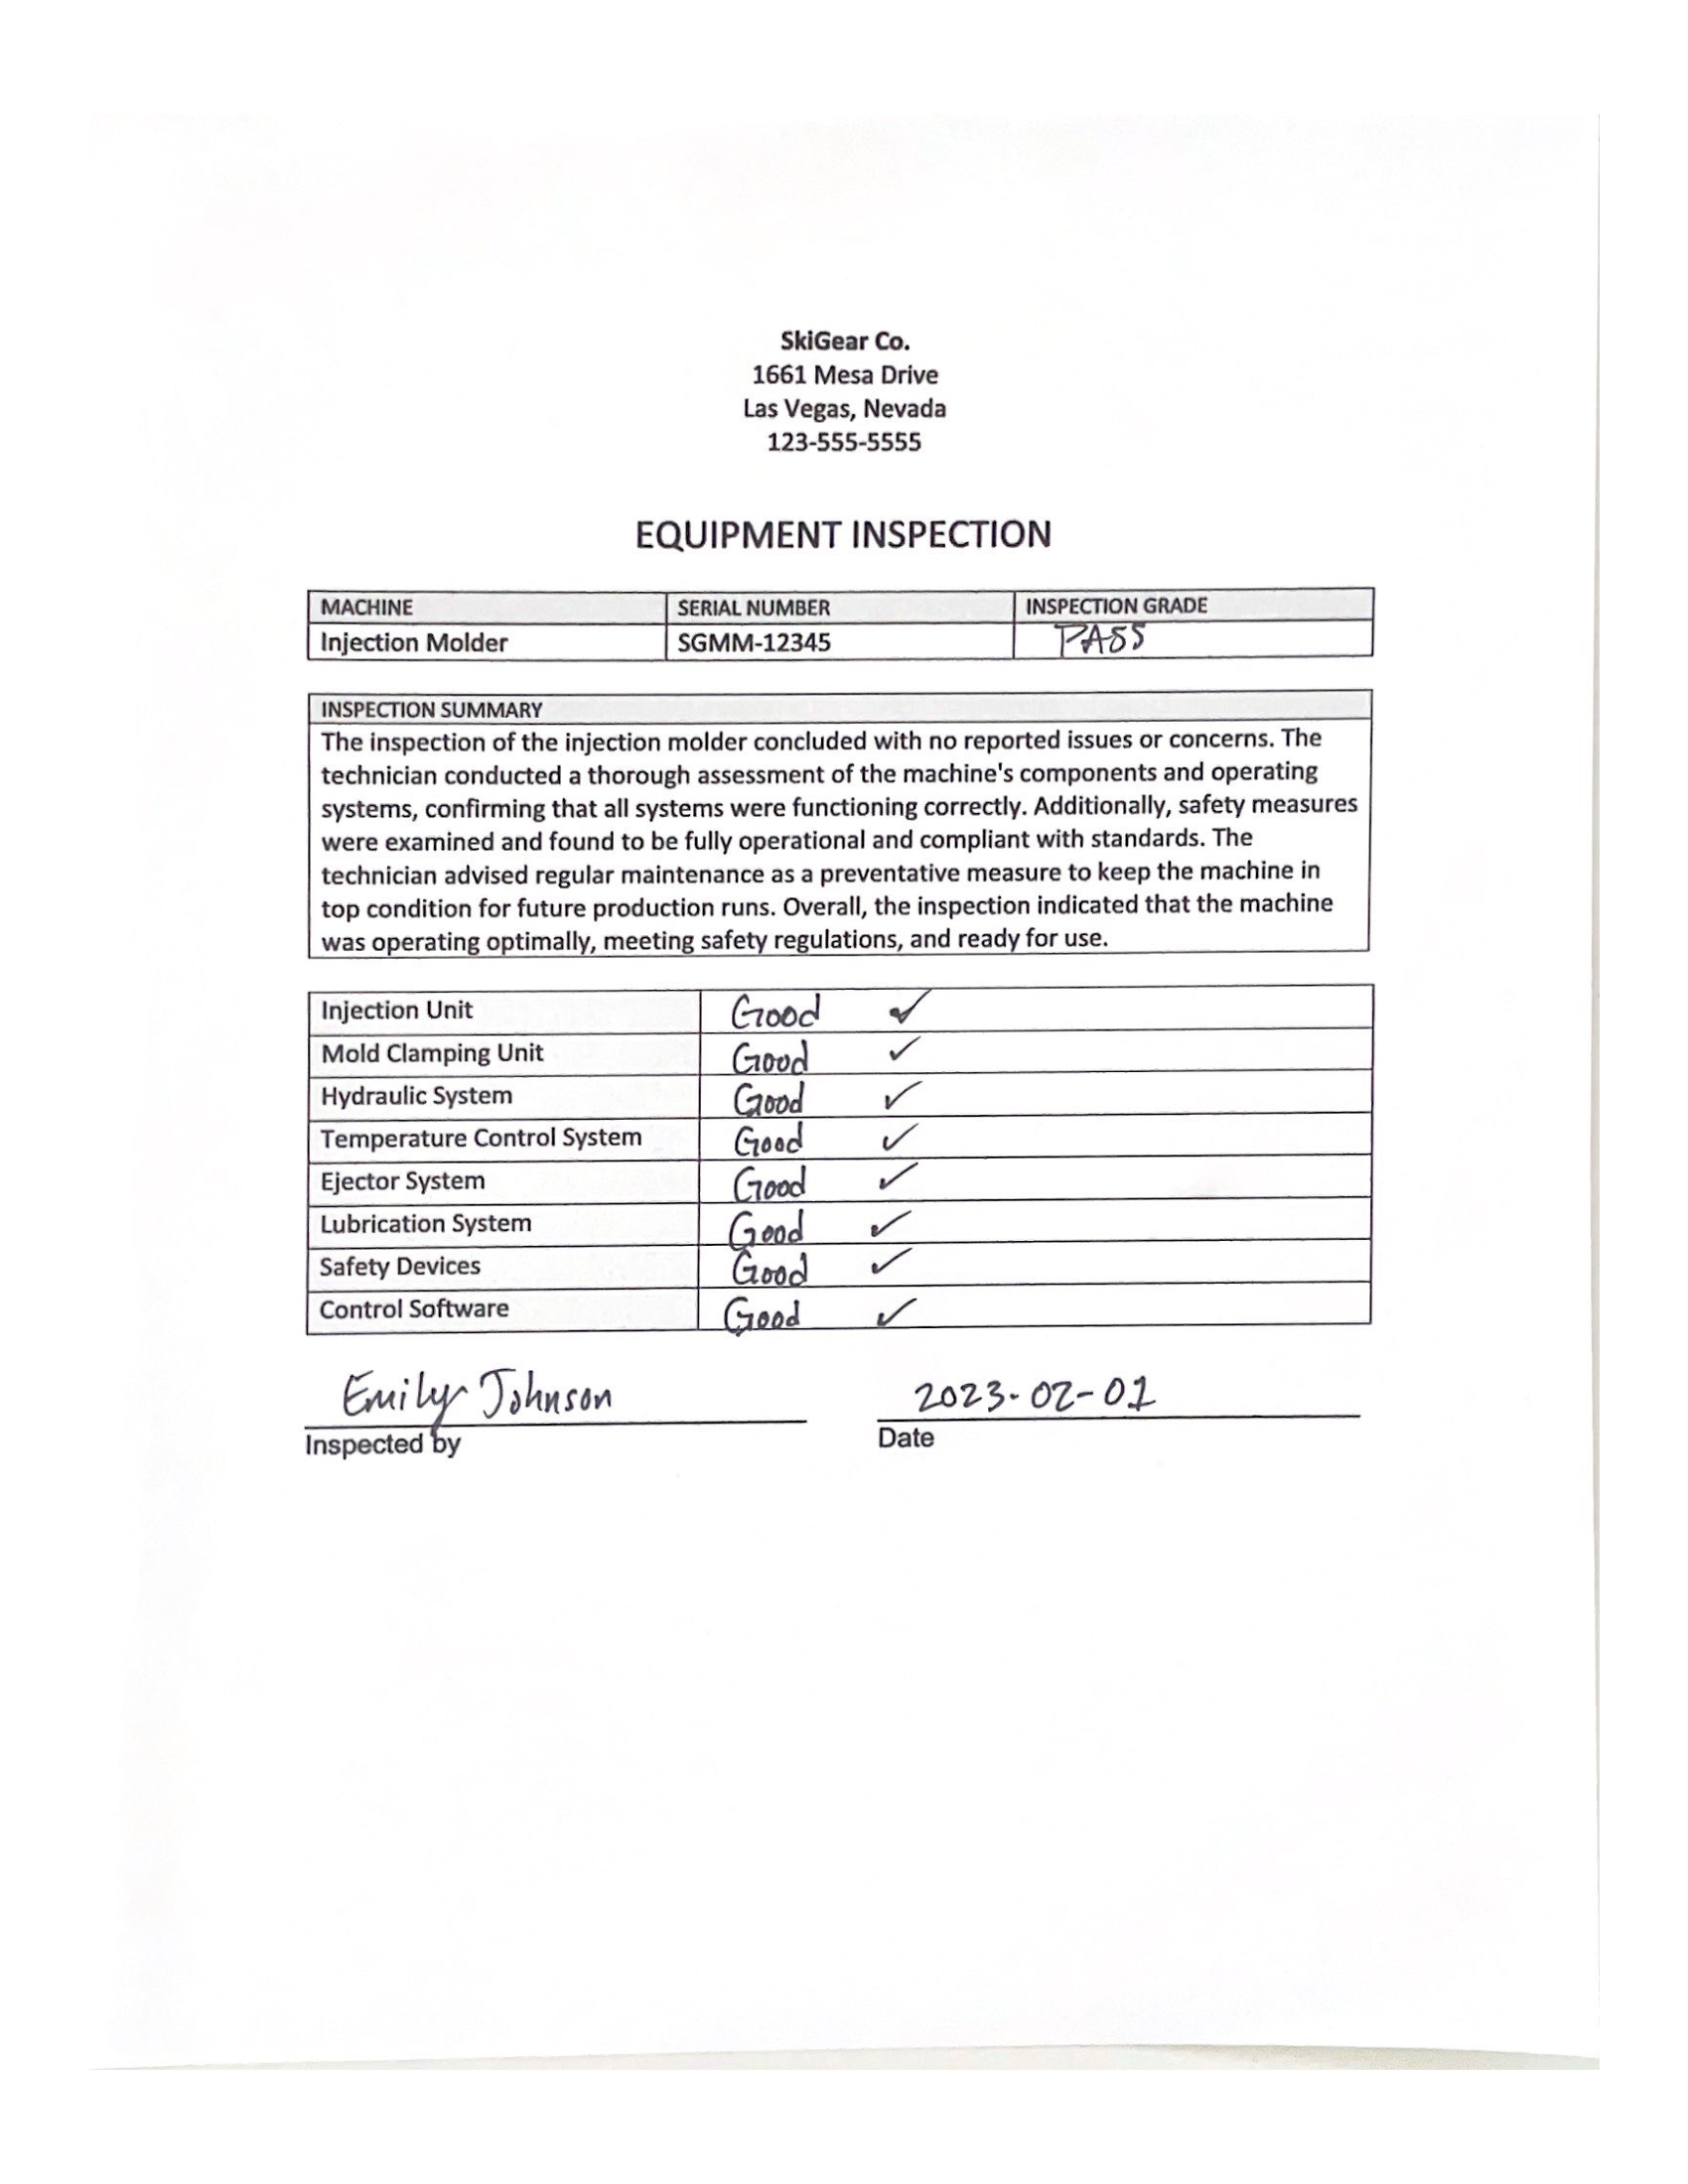 SkiGear Co.
1661 Mesa Drive
Las Vegas, Nevada
123-555-5555
EQUIPMENT INSPECTION
MACHINE SERIAL NUMBER INSPECTION GRADE
Injection Molder SGMM-12345 PASS
INSPECTION SUMMARY
The inspection of the injection molder concluded with no reported issues or concerns. The
technician conducted a thorough assessment of the machine's components and operating
systems, confirming that all systems were functioning correctly. Additionally, safety measures
were examined and found to be fully operational and compliant with standards. The
technician advised regular maintenance as a preventative measure to keep the machine in
top condition for future production runs. Overall, the inspection indicated that the machine
was operating optimally, meeting safety regulations, and ready for use.
Injection Unit Good ✓
Mold Clamping Unit Good ✓
Hydraulic System Good ✓
Temperature Control System Good ✓
Ejector System Good ✓
Lubrication System Good ✓
Safety Devices Good ✓
Control Software Good ✓
Emily Johnson 2023-02-01
Inspected by Date